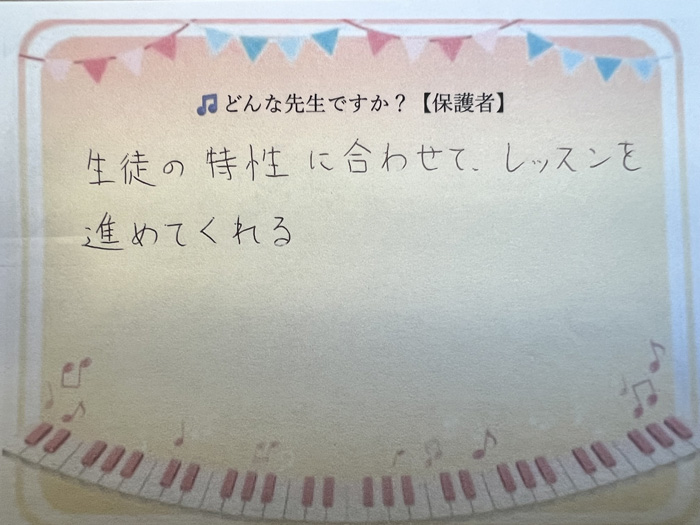 🎵どんな先生ですか？【保護者】
生徒の特性に合わせて、レッスンを
進めてくれる